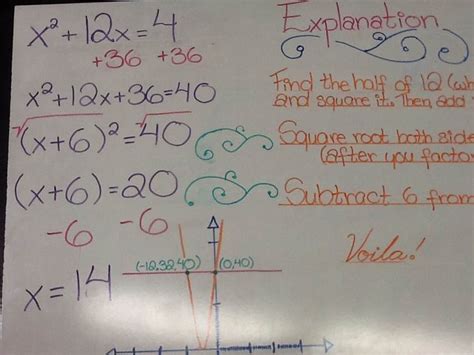 x² + 12x = 4
+36 +36
x² + 12x + 36 = 40
√(x+6)² = √40
(x+6) = 20
-6 -6
x = 14
Explanation
Find the half of 12
and square it. Then add
Square root both
(after you
Subtract 6 from
Voila!
(-12,32,40) (0,40)